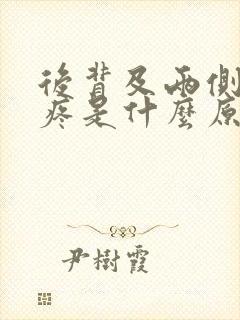 後背及兩側
疼是什麼原
尹樹霞